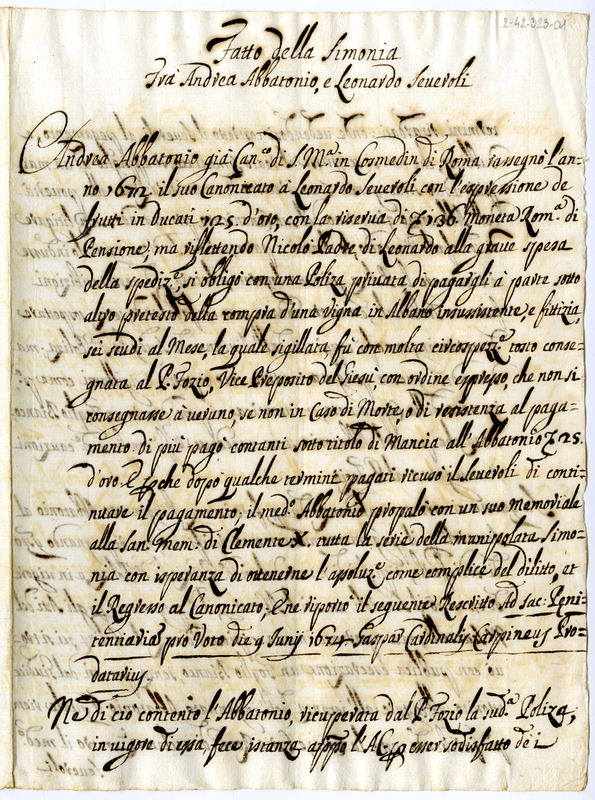 2-42-323-01
Fatto della Simonia
Trà Andrea Abbatonio, e Leonardo Seueroli
Andrea Abbatonio già Can.co di S. M.a in Cosmedin di Roma rassegnò l'an=
no 1672. il suo Canonicato à Leonardo Seueroli con l'espressione de
frutti in Ducati 125. d'oro, con la riserua di 136 moneta Rom.a di
Pensione, ma riflettendo Nicolò Padre di Leonardo alla graue spesa
della spediz.e, si obligò con una Poliza priuata di pagargli à parte sotto
altro pretesto della compra d'una vigna in Albano insussistente, e fittizia,
sei scudi al Mese, la quale sigillata fù con molta circospez.e tosto conse=
gnata al P. Fozio, Vice Preposito del Giesù, con ordine espresso, che non si
consegnasse à veruno, se non in Caso di Morte, o di resistenza al paga=
mento di più pagò contanti sotto titolo di Mancia all'Abbatonio 25.
d'oro. E che dopo qualche termine pagati ricusò il Seueroli di conti=
nuare il pagamento; il med.o Abbatonio propalò con un suo Memoriale
alla San: Mem. di Clemente X. tutta la serie della manipolata Simo=
nia con isperanza di ottenerne l'assoluz.e come complice del dilitto, et
il Regresso al Canonicato, E ne riportò il seguente Rescritto Ad sac: Peni=
tentiaria pro Voto die 9 Junij 1674. Gaspar Cardinalis Carpineus Pro=
datarius.
Ne di ciò contento l'Abbatonio, ricuperata dal P. Fozio la sud.a Poliza,
in uigore di essa, fece istanza appo l'AC. esser sodisfatto de i